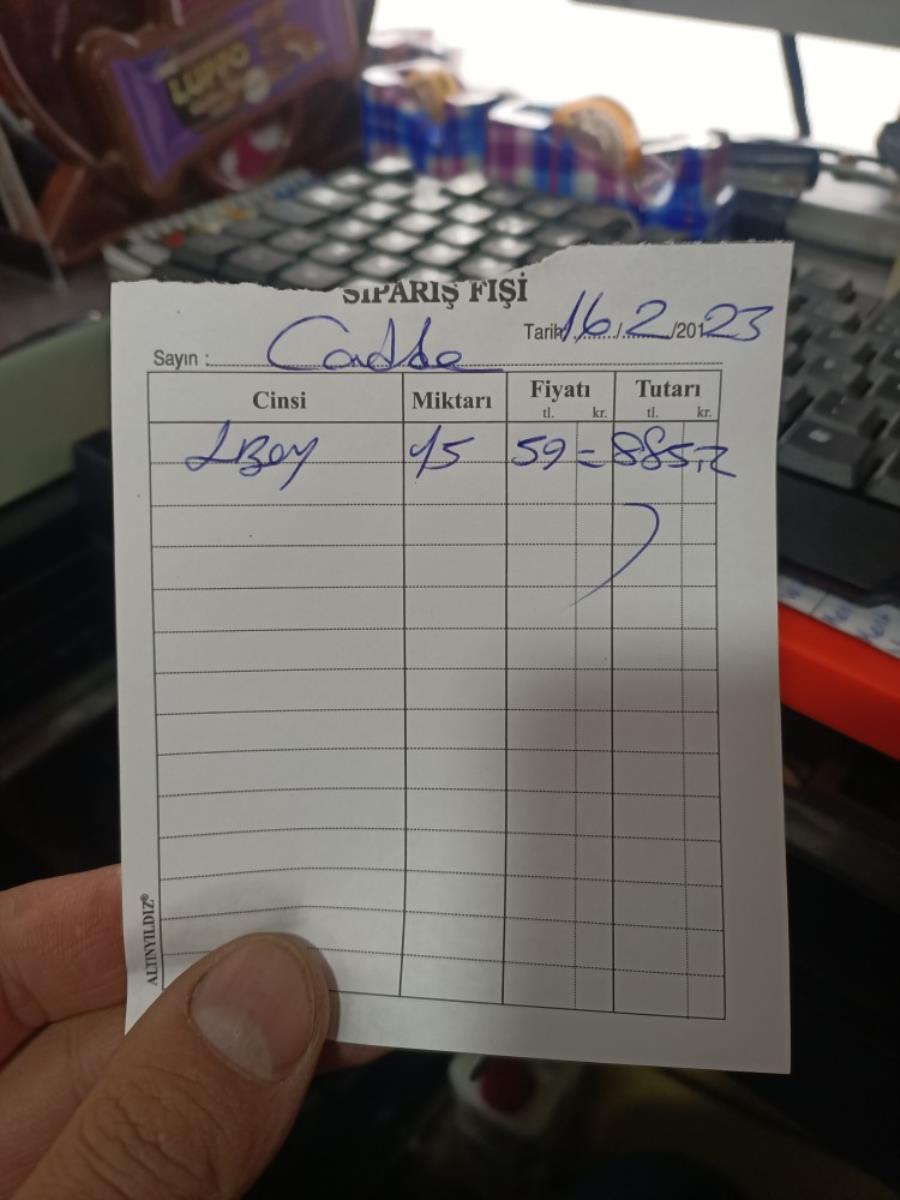 LUPPO
SİPARİŞ FİŞİ
Tarih 16/2/20123
Sayın : Cadde
Cinsi Miktarı Fiyatı Tutarı
tl. kr. tl. kr.
15 59 = 885
ALTINYILDIZ®